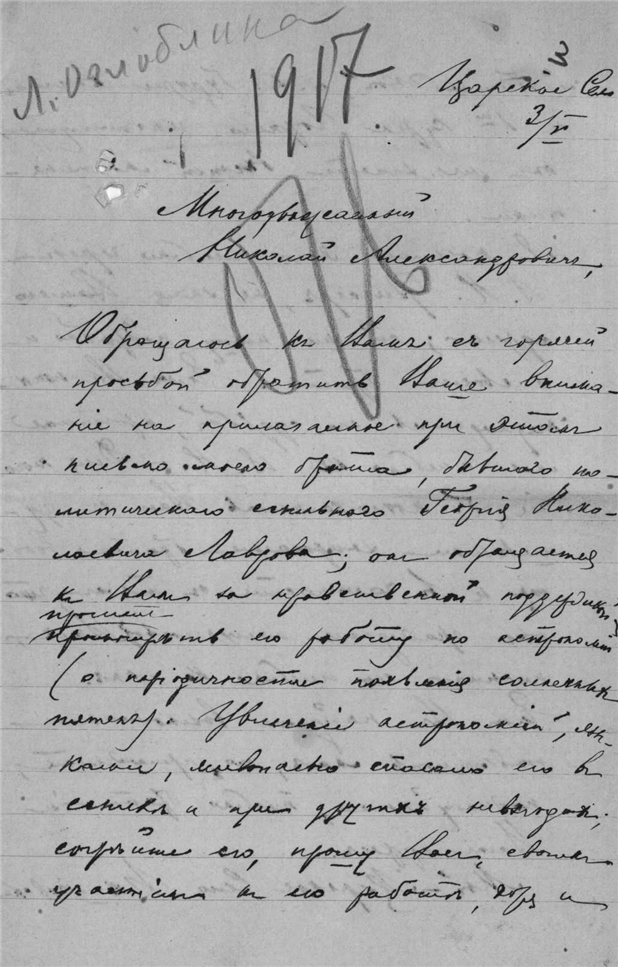 Л. Оглоблина
1917
Царское Село
3/V
Многоуважаемый
Николай Александровичъ,
Обращаюсь къ Вамъ съ горячей
просьбой обратить Ваше внима-
нiе на прилагаемое при этомъ
письмо моего брата, бывшего по-
литического ссыльного Георгiя Нико-
лаевича Лаврова; он обращается
к Вам за нравственной поддержкой
просит
просмотрѣть его работу по астрономiи
(о перiодичности появленiя солнечных
пятенъ). Увлеченiе астрономiей,
музыкой, спасало его в
ссылкѣ и при другихъ невзгодах;
согрѣйте его, прошу Вас, своим
участiем к его работѣ, и